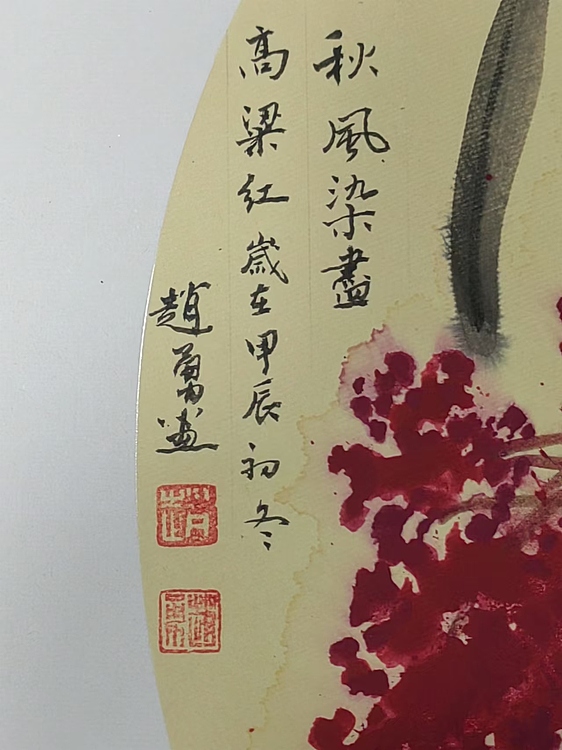 秋風染盡
高粱紅歲在甲辰初冬
趙勇畫